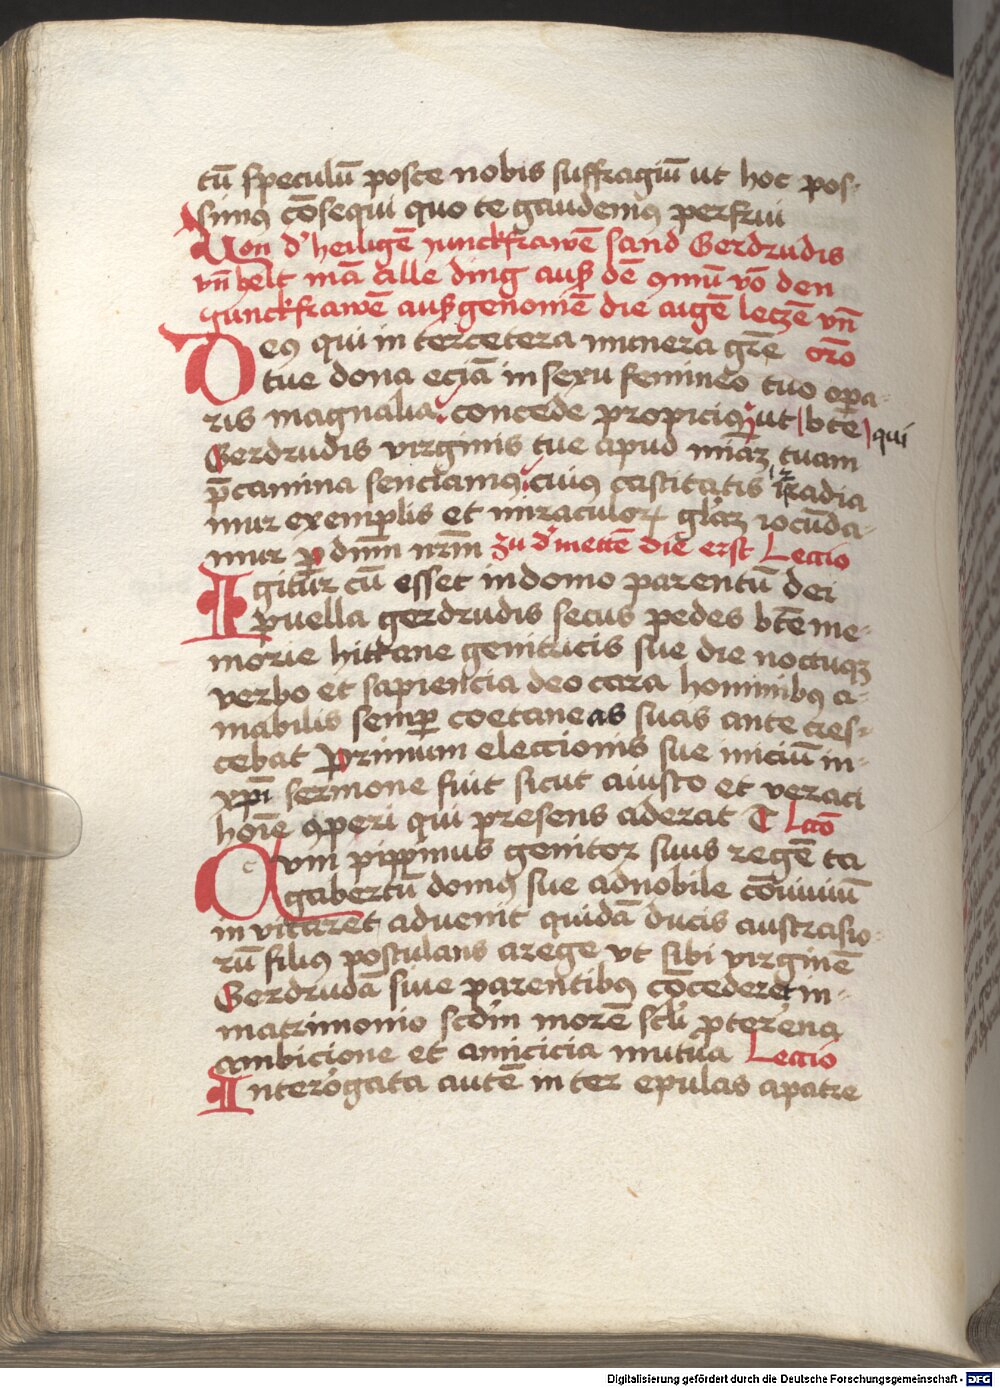 tū speculū posce nobis suffragiū ut hoc pos-
simus cōsequi quo te gaudemus perfrui
Von d' heiligē junckfrawē sand Gerdrudis
vn̄ helt mā alle ding auß dē 9mū vō den
junckfrawē außgenomē die aigē leczē vn̄
Deus qui in ter cetera munera grē oro
tue dona eciā in sexu femineo tuo opera-
ris magnalia concede propicius ut bte qui
Gerdrudis virginis tue apud miāz tuam
p̄camina senciamus cuius castitatis irradia
mur exemplis et miraculor glaz iocūda-
mur p dnm nrm zu d' mettē die erst Leccio
Igitur cū esset in domo parentū dei
puella gerdrudis secus pedes btē me-
morie hittane genitricis sue die noctuqz
verbo et sapiencia deo cara hominibus a-
mabilis semp coetaneas suas ante cres-
cebat Primum eleccionis sue iniciū in-
xpi sermone fuit sicut a iusto et veraci
hoīe 9peri qui presens aderat Lcō
Qum pippinus genitor suus regē ta
gabertū domus sue ad nobile cōviviū
in vitaret advenit quidā ducis austrasio-
rū filius postulans a rege ut sibi virginē
Gerdrudā sive parentibus cōcederet in-
matrimonio scdm morē scli pterrena
ambicione et amicicia mutua Leccio
Interogata autē in ter epulas a patre
Digitalisierung gefördert durch die Deutsche Forschungsgemeinschaft - DFG